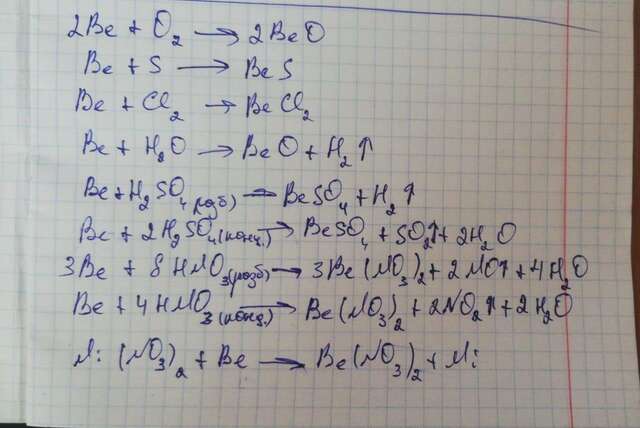 2Be + O₂ → 2BeO
Be + S → BeS
Be + Cl₂ → BeCl₂
Be + H₂O → BeO + H₂↑
Be + H₂SO₄(розб) → BeSO₄ + H₂↑
Be + 2H₂SO₄(конц.) → BeSO₄ + SO₂↑ + 2H₂O
3Be + 8HNO₃(розб) → 3Be(NO₃)₂ + 2NO↑ + 4H₂O
Be + 4HNO₃(конц.) → Be(NO₃)₂ + 2NO₂↑ + 2H₂O
Ni(NO₃)₂ + Be → Be(NO₃)₂ + Ni